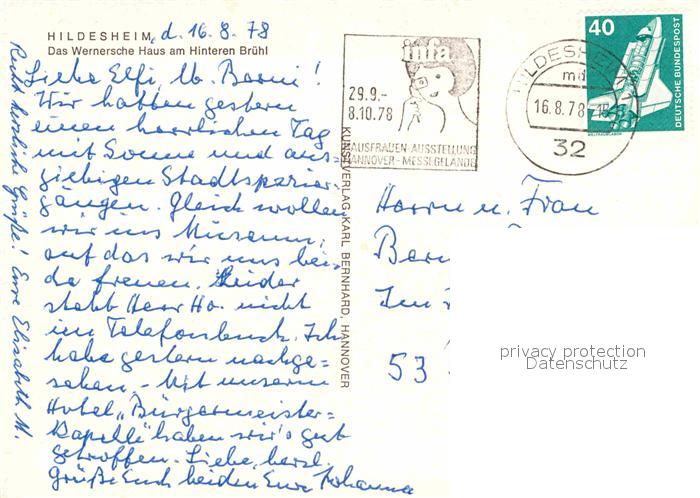 HILDESHEIM, d. 16.8.78
Das Wernersche Haus am Hinteren Brühl
Liebe Elfi, lb. Berni!
Wir hatten gestern
einen herrlichen Tag
mit Sonne und aus=
giebigen Stadtspazier=
gängen. Gleich wollen
wir ins Museum,
auf das wir uns bei=
de freuen. Leider
steht Herr Ho. nicht
im Telefonbuch. Ich
habe gestern nachge=
sehen. - Mit unserm
Hotel „Bürgermeister=
kapelle" haben wir's gut
getroffen. Liebe, herzl.
Grüße Euch beiden Eure Johanna
Recht herzliche Grüße! Eure Elisabeth M.
KUNSTVERLAG KARL BERNHARD, HANNOVER
infa
29.9.-
8.10.78
HAUSFRAUEN-AUSSTELLUNG
HANNOVER-MESSEGELÄNDE
HILDESHEIM
md
16.8.78-15
32
40
DEUTSCHE BUNDESPOST
WELTRAUMLABOR
Herrn u. Frau
Ber
Im
53
privacy protection
Datenschutz